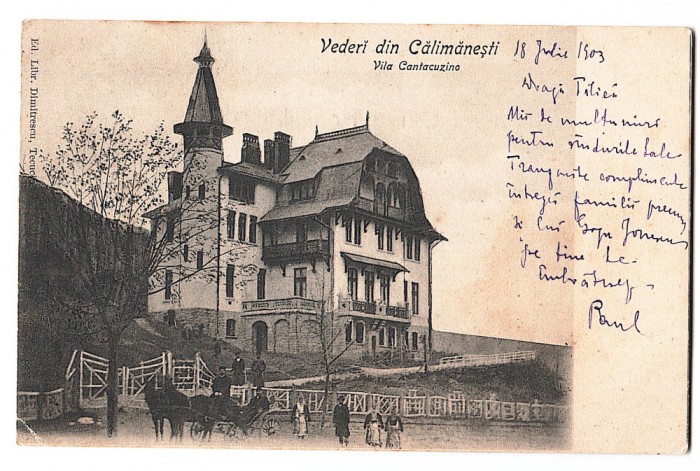 Vederĭ din Călimăneştĭ
Vila Cantacuzino
Ed. Libr. Dimitrescu, Tecu
18 Julie 1903
Dragă Tilică
Mii de mulţumiri
pentru rândurile tale
Transmite complimente
întregii familii precum
şi
pe tine te
Îmbrăţişez
Paul